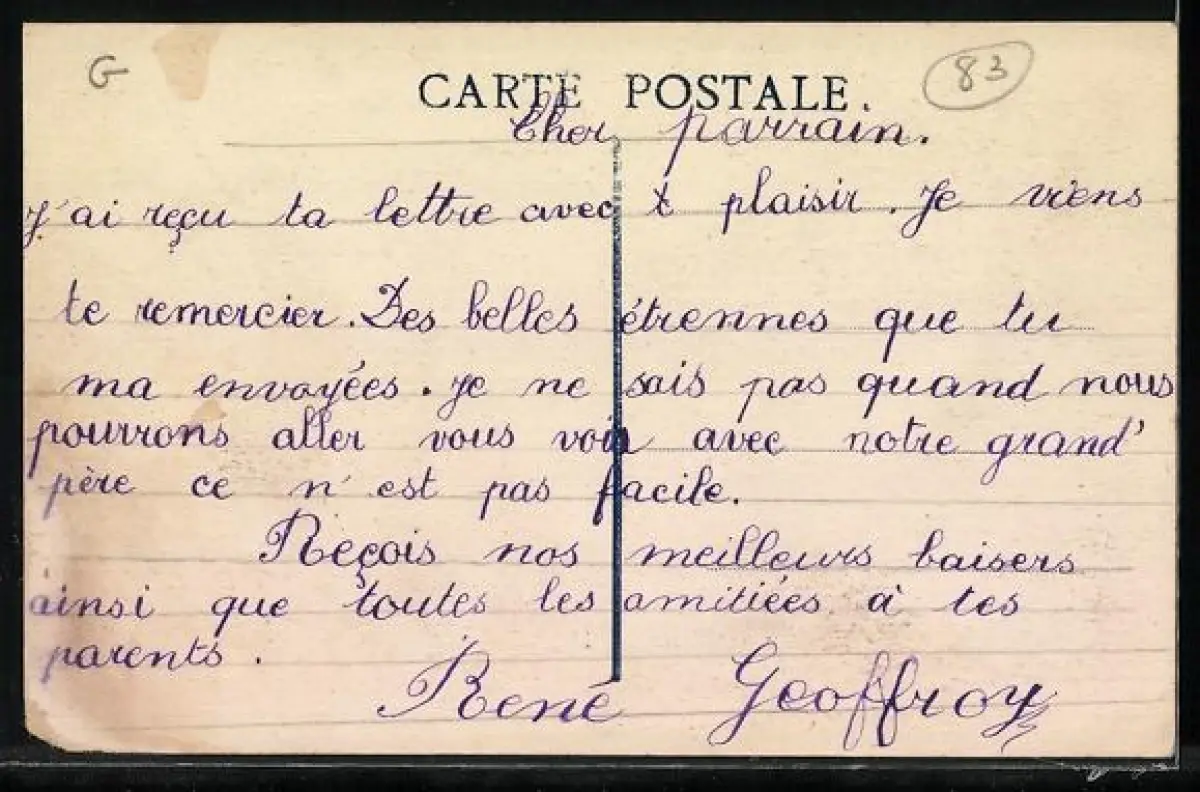 G
83
CARTE POSTALE.
Cher parrain.
j'ai reçu ta lettre avec t plaisir. Je viens
te remercier. Des belles étrennes que tu
ma envoyées. je ne sais pas quand nous
pourrons aller vous voir avec notre grand'
père ce n'est pas facile.
Reçois nos meilleurs baisers
ainsi que toutes les amitiées à tes
parents.
René Geoffroy